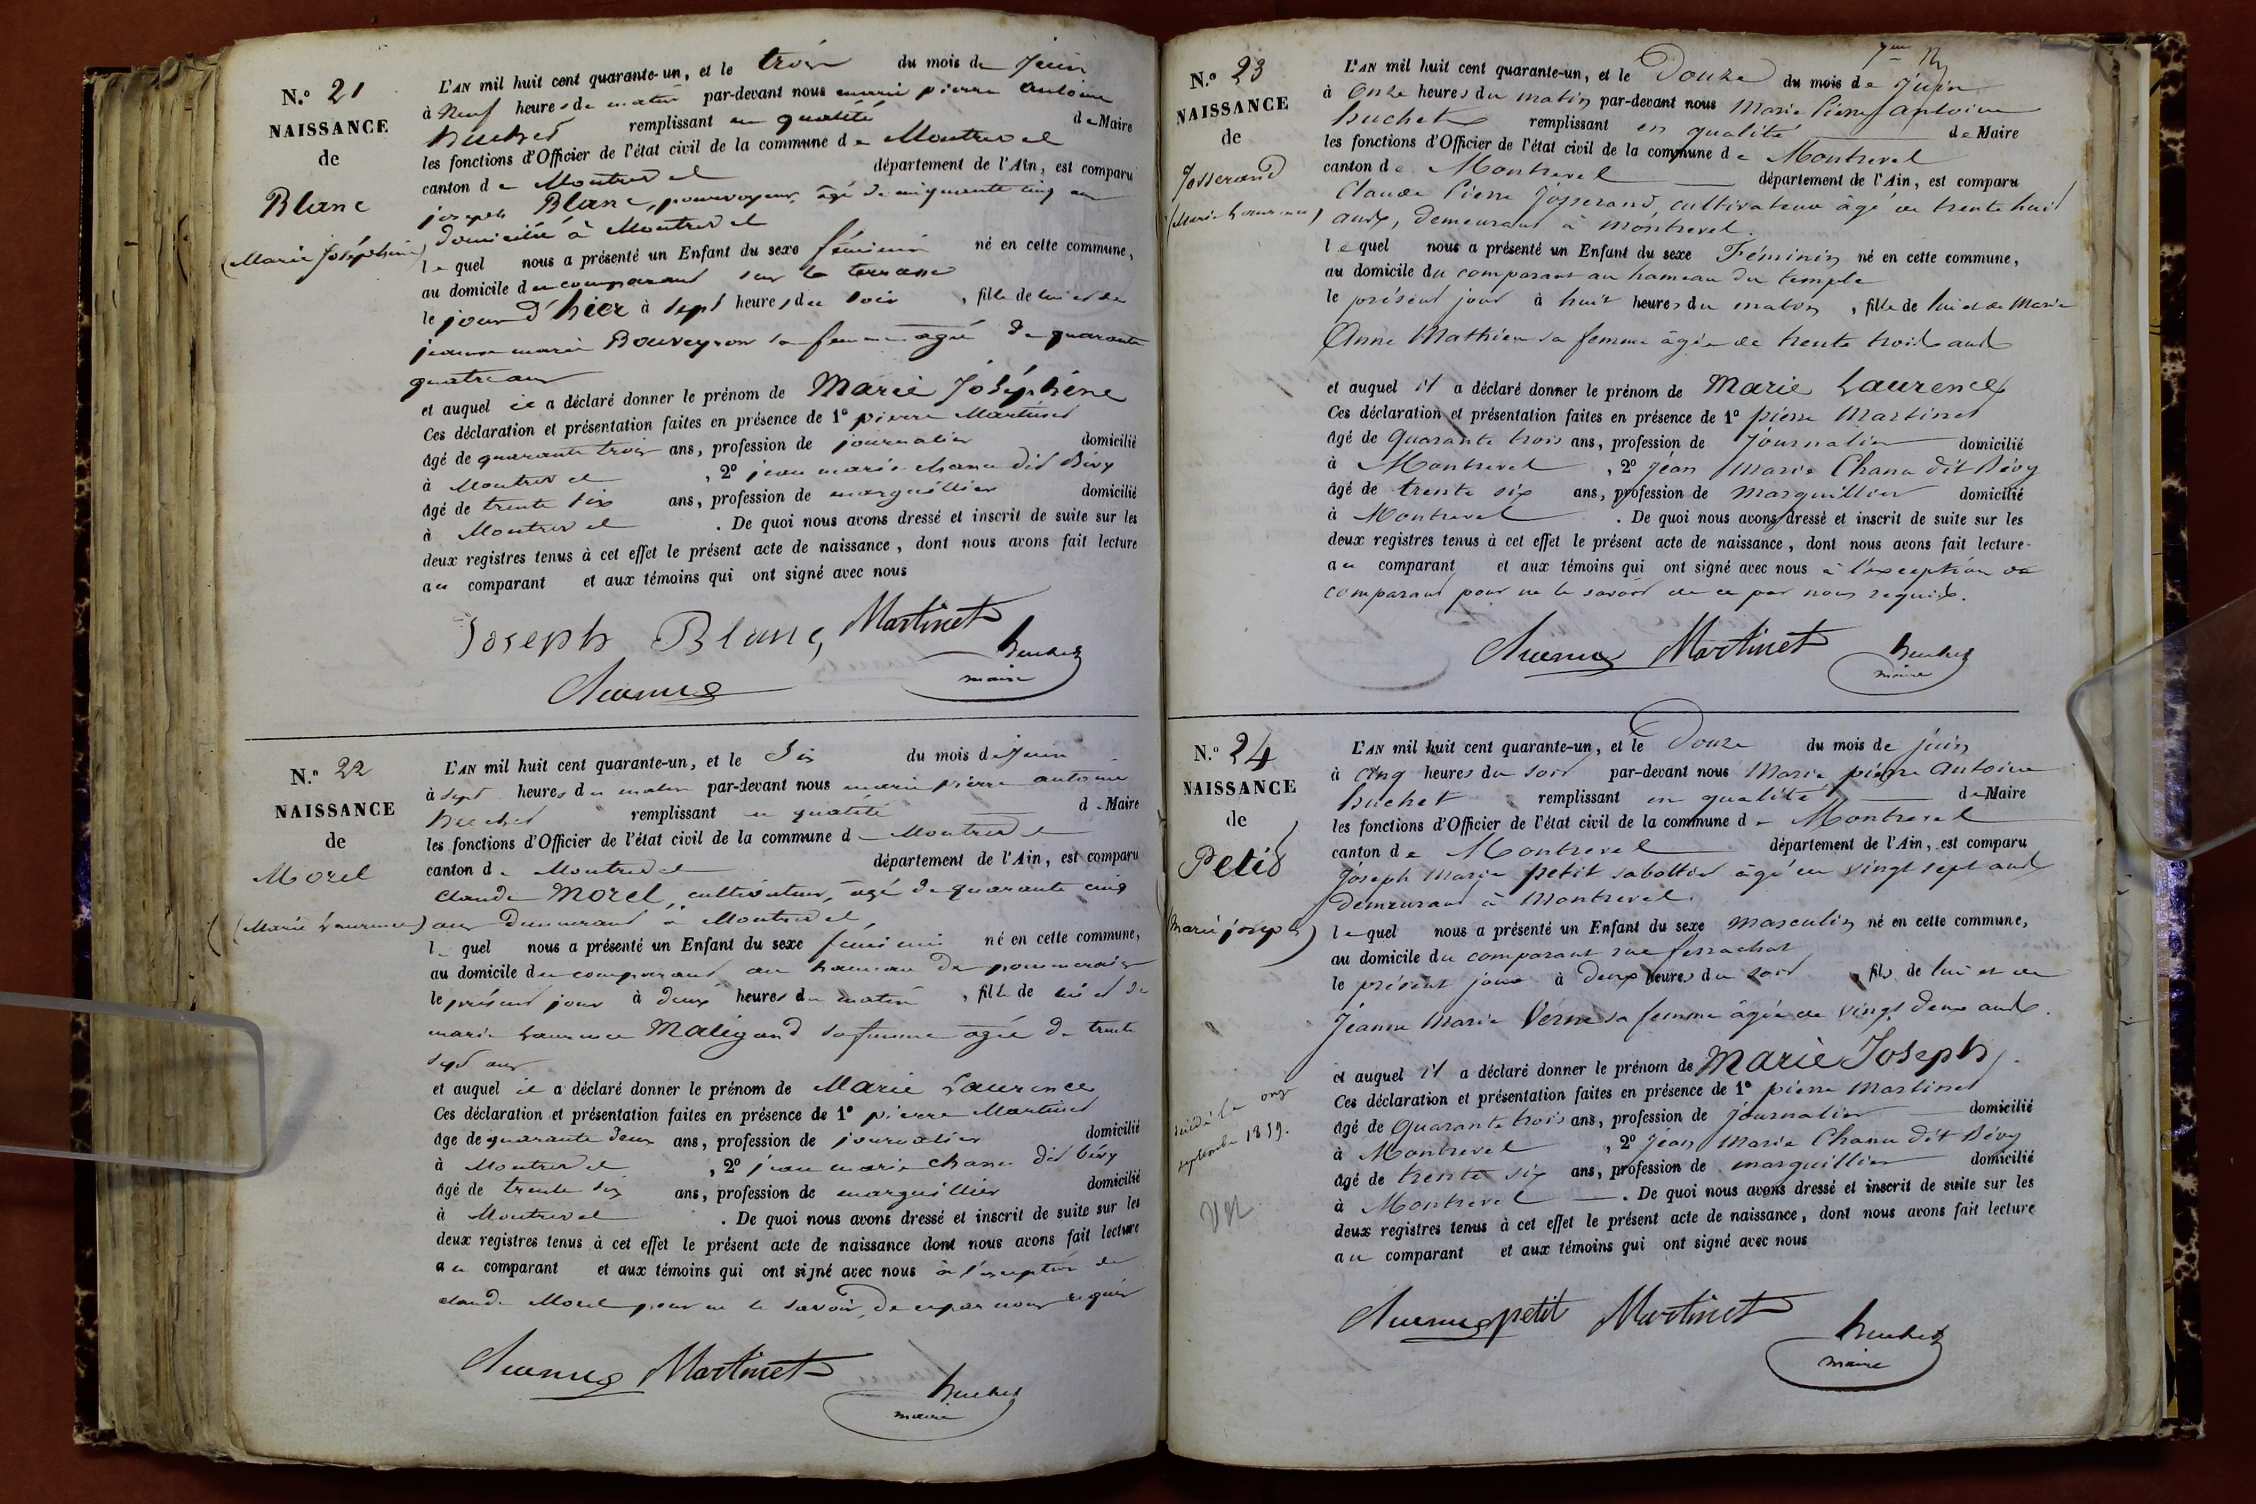 N.º 21
NAISSANCE
de
Blanc
(Marie Joséphine)
L'AN mil huit cent quarante-un, et le trois du mois de Juin
à Neuf heures du matin par-devant nous marie pierre antoine
huchet remplissant en qualité de Maire
les fonctions d'Officier de l'état civil de la commune de Montrevel
canton de Montrevel département de l'Ain, est comparu
joseph Blanc, pourvoyeur, âgé de cinquante cinq ans
domicilié à Montrevel
lequel nous a présenté un Enfant du sexe féminin né en cette commune,
au domicile du comparant sur la terrasse
le jour d'hier à sept heures du soir, fille de lui et de
jeanne marie Bouveyron sa femme agée de quarante
quatre ans
et auquel il a déclaré donner le prénom de Marie Joséphine
Ces déclaration et présentation faites en présence de 1º pierre Martinet
âgé de quarante trois ans, profession de journalier domicilié
à Montrevel, 2º jean marie chanu dit Bévy
âgé de trente six ans, profession de marguillier domicilié
à Montrevel. De quoi nous avons dressé et inscrit de suite sur les
deux registres tenus à cet effet le présent acte de naissance, dont nous avons fait lecture
au comparant et aux témoins qui ont signé avec nous
Joseph Blanc Martinet
huchet
maire
N.º 22
NAISSANCE
de
Morel
(Marie Laurence)
L'AN mil huit cent quarante-un, et le Six du mois de juin
à sept heures du matin par-devant nous marie pierre antoine
huchet remplissant en qualité de Maire
les fonctions d'Officier de l'état civil de la commune de Montrevel
canton de Montrevel département de l'Ain, est comparu
claude Morel, cultivateur, âgé de quarante cinq
ans demeurant à Montrevel,
lequel nous a présenté un Enfant du sexe féminin né en cette commune,
au domicile du comparant au hameau de
le présent jour à deux heures du matin, fille de lui et de
marie Laurence Maligand sa femme agée de trente
sept ans
et auquel il a déclaré donner le prénom de Marie Laurence
Ces déclaration et présentation faites en présence de 1º pierre Martinet
âge de quarante deux ans, profession de journalier domicilié
à Montrevel, 2º jean marie chanu dit bévy
âgé de trente six ans, profession de marguillier domicilié
à Montrevel. De quoi nous avons dressé et inscrit de suite sur les
deux registres tenus à cet effet le présent acte de naissance dont nous avons fait lecture
au comparant et aux témoins qui ont signé avec nous à l'exception de
claude Morel pour ne le savoir, de ce par nous requis
Martinet
huchet
maire
N.º 23
NAISSANCE
de
Josserand
(Marie Laurence)
L'AN mil huit cent quarante-un, et le Douze du mois de Juin
à Onze heures du matin par-devant nous Marie Pierre Antoine
huchet remplissant en qualité de Maire
les fonctions d'Officier de l'état civil de la commune de Montrevel
canton de Montrevel département de l'Ain, est comparu
Claude Pierre Josserand, cultivateur âgé de trente huit
ans, demeurant à Montrevel.
lequel nous a présenté un Enfant du sexe Féminin né en cette commune,
au domicile du comparant au hameau du temple
le présent jour à huit heures du matin, fille de lui et de Marie
Anne Mathieu sa femme âgée de trente trois ans
et auquel il a déclaré donner le prénom de Marie Laurence
Ces déclaration et présentation faites en présence de 1º pierre Martinet
âgé de Quarante trois ans, profession de Journalier domicilié
à Montrevel, 2º Jéan Marie Chanu dit Bévy
âgé de trente six ans, profession de Marguillier domicilié
à Montrevel. De quoi nous avons dressé et inscrit de suite sur les
deux registres tenus à cet effet le présent acte de naissance, dont nous avons fait lecture
au comparant et aux témoins qui ont signé avec nous à l'exception du
comparant pour ne le savoir de ce par nous requis.
Martinet
huchet
maire
N.º 24
NAISSANCE
de
Petit
(Marie joseph)
L'AN mil huit cent quarante-un, et le Douze du mois de juin
à cinq heures du soir par-devant nous Marie pierre Antoine
huchet remplissant en qualité de Maire
les fonctions d'Officier de l'état civil de la commune de Montrevel
canton de Montrevel département de l'Ain, est comparu
Joseph Marie petit sabottier âgé de vingt sept ans
demeurant à Montrevel.
lequel nous a présenté un Enfant du sexe Masculin né en cette commune,
au domicile du comparant rue
le présent jour à deux heures du soir, fils de lui et de
Jéanne Marie Verne sa femme âgée de vingt deux ans.
et auquel il a déclaré donner le prénom de Marie Joseph.
Ces déclaration et présentation faites en présence de 1º pierre Martinet
âgé de Quarante trois ans, profession de Journalier domicilié
à Montrevel, 2º Jéan Marie Chanu dit Bévy
âgé de trente six ans, profession de marguillier domicilié
à Montrevel. De quoi nous avons dressé et inscrit de suite sur les
deux registres tenus à cet effet le présent acte de naissance, dont nous avons fait lecture
au comparant et aux témoins qui ont signé avec nous
décédé le onze
septembre 1859.
petit Martinet
huchet
maire